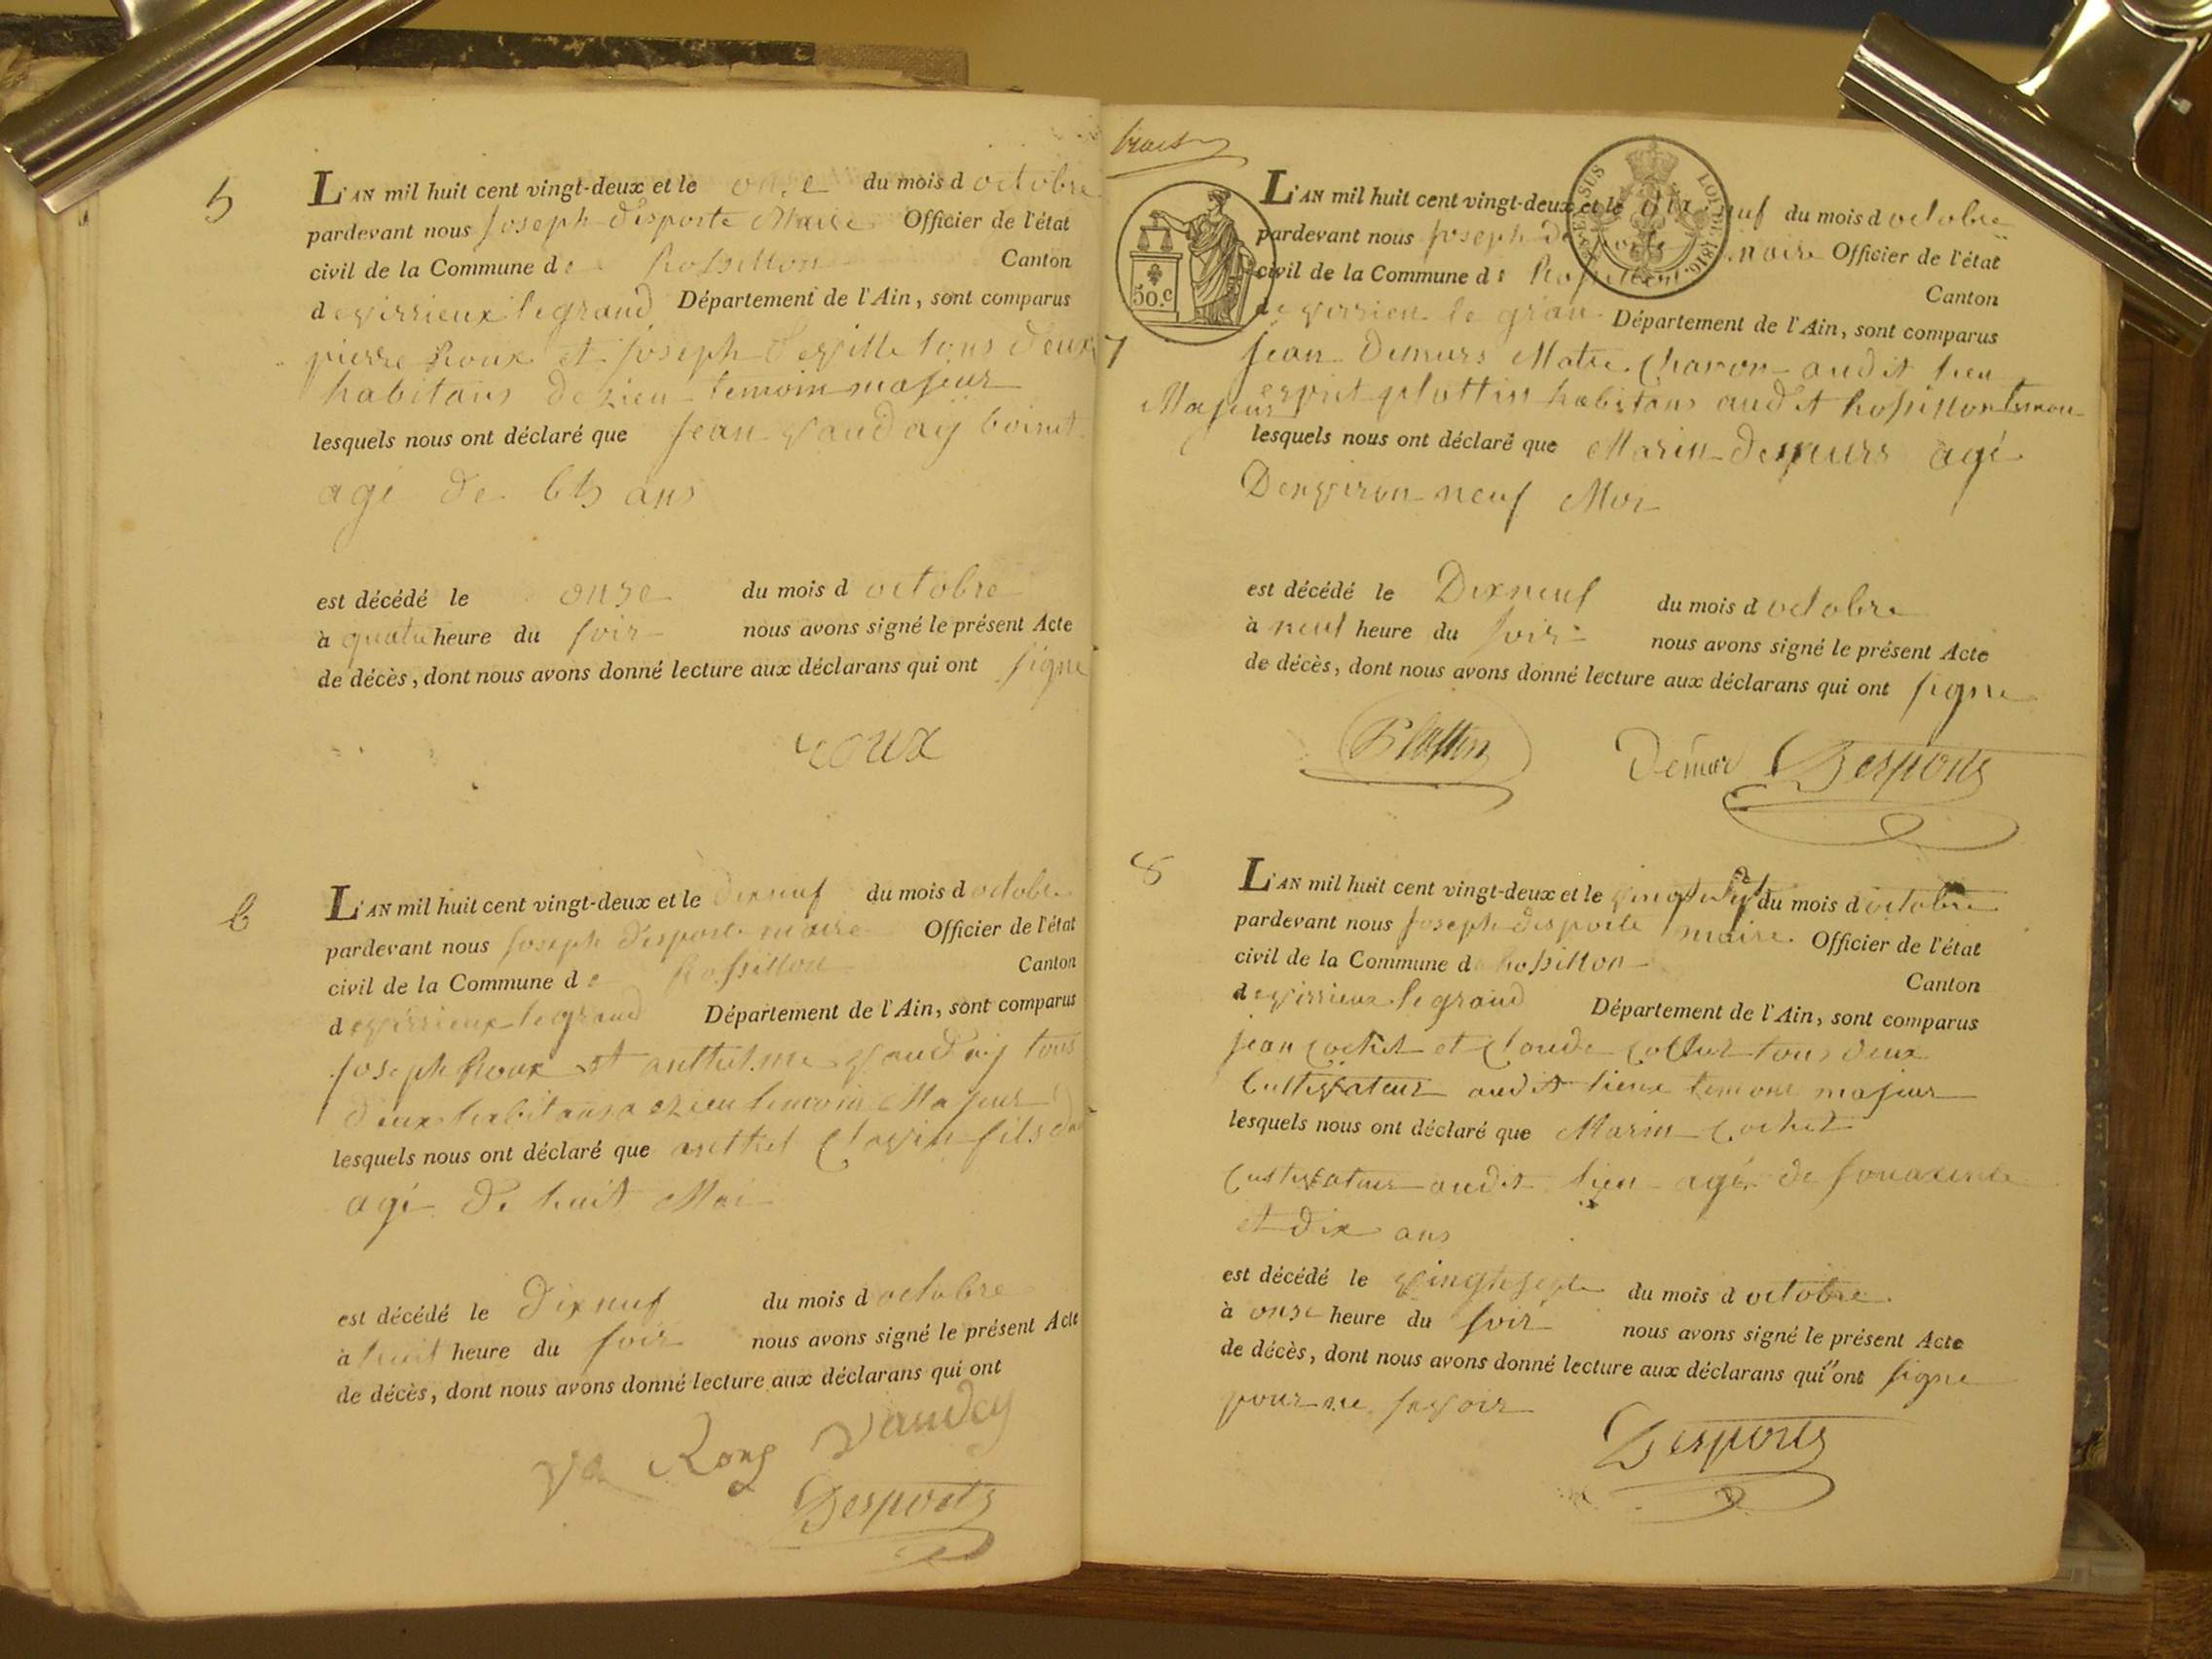 5
L'AN mil huit cent vingt-deux et le onze du mois d octobre
pardevant nous joseph desporte Maire Officier de l'état
civil de la Commune de Rossillon Canton
de virrieux le grand Département de l'Ain, sont comparus
pierre Roux et joseph tous deux
habitans temoin majeur
lesquels nous ont déclaré que jean vauday
agé de 65 ans
est décédé le onze du mois d octobre
à quatre heure du soir nous avons signé le présent Acte
de décès, dont nous avons donné lecture aux déclarans qui ont signe
roux
6
L'AN mil huit cent vingt-deux et le dixneuf du mois d octobre
pardevant nous joseph desporte maire Officier de l'état
civil de la Commune de Rossillon Canton
de virrieux le grand Département de l'Ain, sont comparus
joseph Roux et anthelme vauday tous
deux habitans temoin Majeur
lesquels nous ont déclaré que anthel Clavin fils
agé de huit Moi
est décédé le dixneuf du mois d octobre
à huit heure du soir nous avons signé le présent Acte
de décès, dont nous avons donné lecture aux déclarans qui ont
vauday
Desports
trois
EN-DESSUS LOI DE 1816.
50.c
7
L'AN mil huit cent vingt-deux et le dix neuf du mois d octobre
pardevant nous joseph desporte maire Officier de l'état
civil de la Commune de Rossillon Canton
de virrieu le gran Département de l'Ain, sont comparus
jean Demurs Matre Charon audit lieu
esprit plottin habitans audit Rossillon temou
Majeur
lesquels nous ont déclaré que Marin demurs agé
Denviron neuf Moi
est décédé le Dixneuf du mois d octobre
à neuf heure du soir nous avons signé le présent Acte
de décès, dont nous avons donné lecture aux déclarans qui ont signe
Plottin Demur Desports
8
L'AN mil huit cent vingt-deux et le vingt sept du mois d octobre
pardevant nous joseph desporte maire Officier de l'état
civil de la Commune d Rossillon Canton
de virrieux le grand Département de l'Ain, sont comparus
jean cochet et Claude tous deux
Cultivateur audit lieux temoin majeur
lesquels nous ont déclaré que Marin cochet
Cultivateur audit lieu agé de souaxente
et dix ans
est décédé le vingtsept du mois d octobre
à onze heure du soir nous avons signé le présent Acte
de décès, dont nous avons donné lecture aux déclarans qui n'ont signe
pour ne savoir
Desports